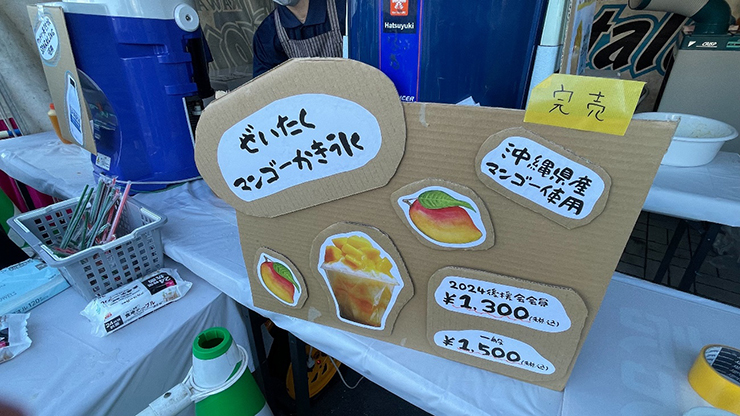 Hatsuyuki
完売
ぜいたく
マンゴーかき氷
沖縄県産
マンゴー使用
2024後援会会員
¥1,300(税込)
一般
¥1,500(税込)